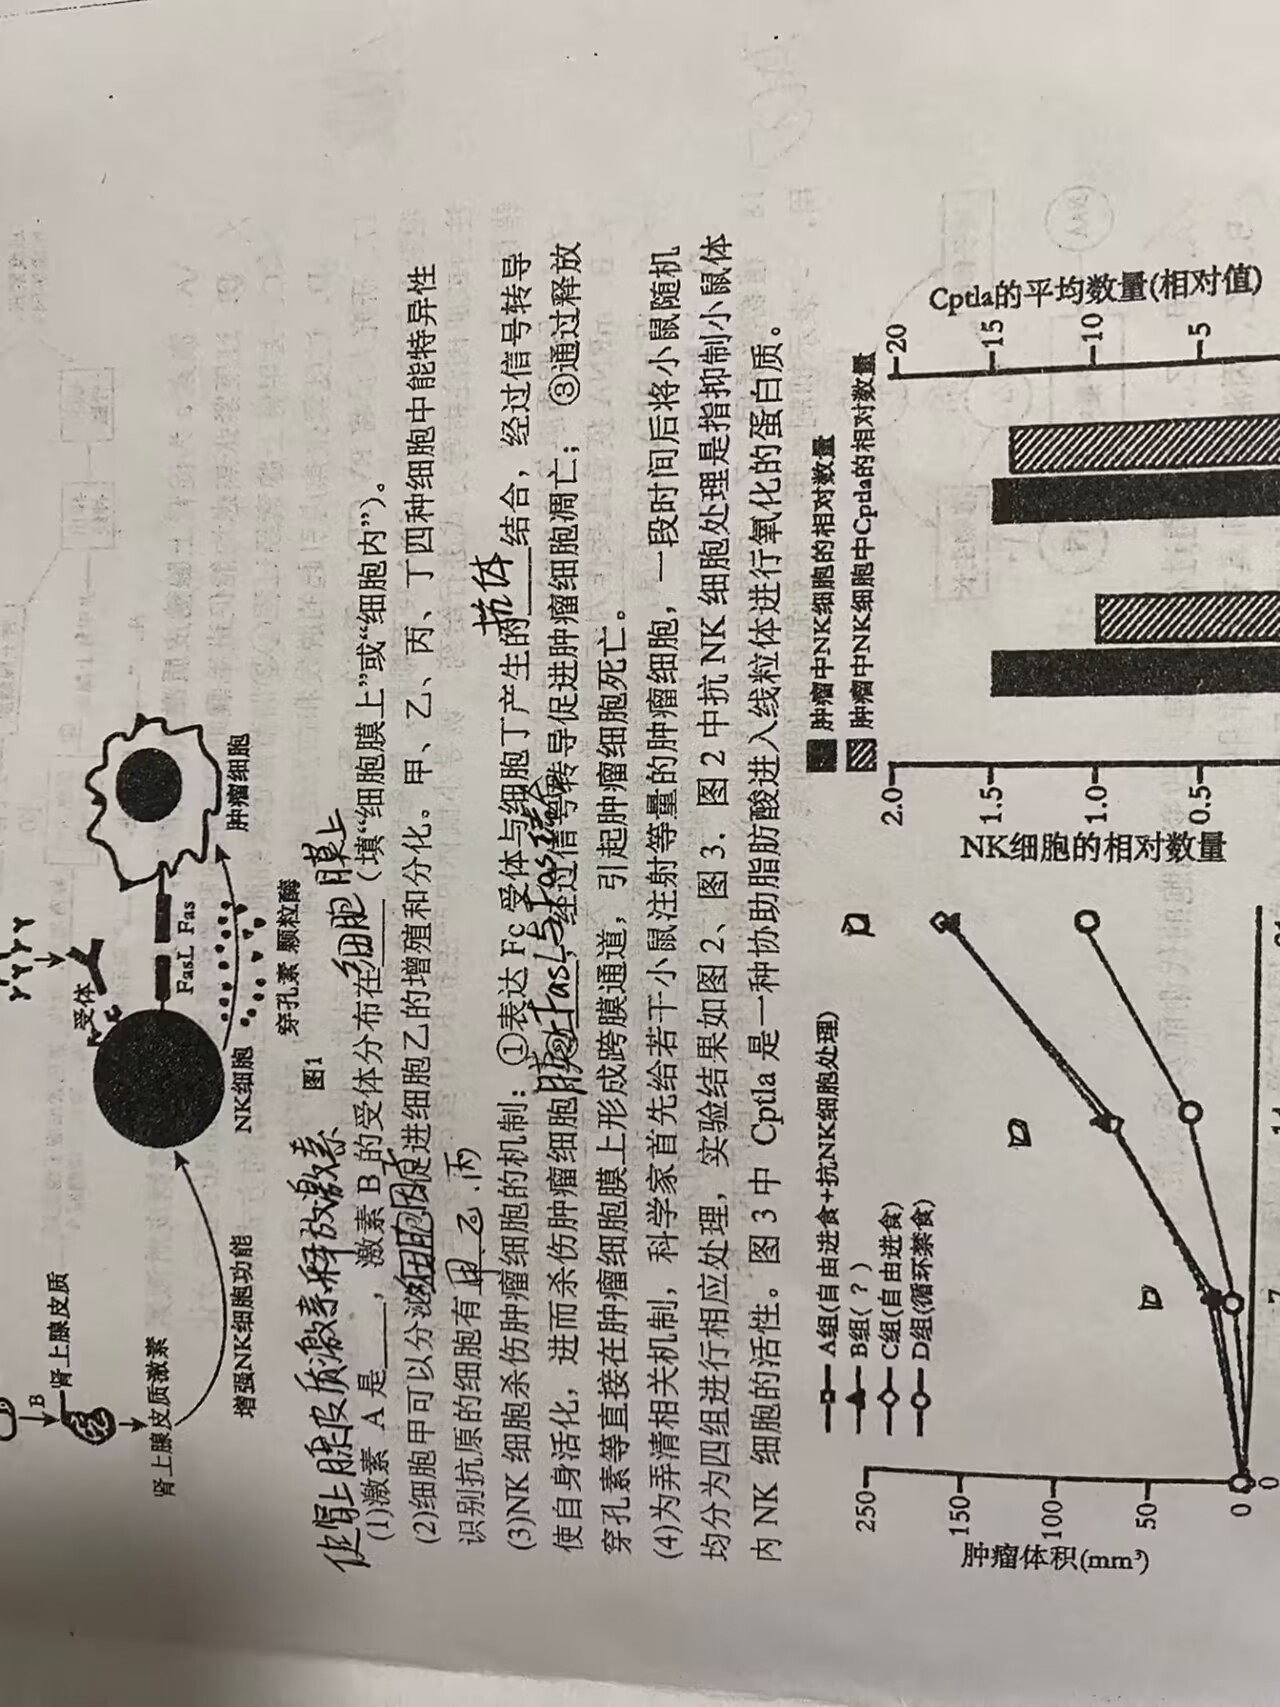 B
肾上腺皮质
肾上腺皮质激素
增强NK细胞功能
受体
NK细胞
FasL Fas
穿孔素 颗粒酶
肿瘤细胞
图1
促肾上腺皮质激素释放激素
细胞膜上
(1)激素 A 是____，激素 B 的受体分布在____(填“细胞膜上”或“细胞内”)。
细胞因子
(2)细胞甲可以分泌____促进细胞乙的增殖和分化。甲、乙、丙、丁四种细胞中能特异性
识别抗原的细胞有 甲.乙.丙
抗体
(3)NK 细胞杀伤肿瘤细胞的机制：①表达 Fc 受体与细胞丁产生的____结合，经过信号转导
使自身活化，进而杀伤肿瘤细胞；②____，经过信号转导促进肿瘤细胞凋亡；③通过释放
膜上FasL与Fas结合
穿孔素等直接在肿瘤细胞膜上形成跨膜通道，引起肿瘤细胞死亡。
(4)为弄清相关机制，科学家首先给若干小鼠注射等量的肿瘤细胞，一段时间后将小鼠随机
均分为四组进行相应处理，实验结果如图 2、图 3．图 2 中抗 NK 细胞处理是指抑制小鼠体
内 NK 细胞的活性。图 3 中 Cptla 是一种协助脂肪酸进入线粒体进行氧化的蛋白质。
A组(自由进食+抗NK细胞处理)
B组(？)
C组(自由进食)
D组(循环禁食)
肿瘤体积(mm³)
250
150
100
50
0
0
7
14
肿瘤中NK细胞的相对数量
肿瘤中NK细胞中Cptla的相对数量
NK细胞的相对数量
2.0
1.5
1.0
0.5
Cptla的平均数量(相对值)
20
15
10
5